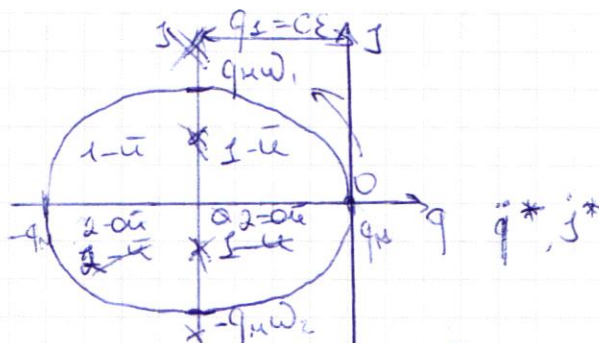 J q₁=Cℰ J
qмω₁
1-й 1-й
0
-qм 2-ой 2-ой qм q q̈*, j*
-qмω₂